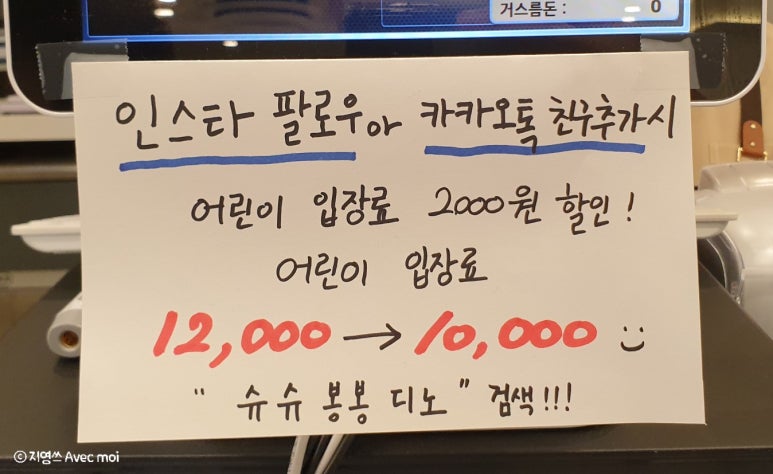 거스름돈 : 0
인스타 팔로우와 카카오톡 친구추가시
어린이 입장료 2000원 할인!
어린이 입장료
12,000 → 10,000 :)
" 슈슈봉봉 디노 " 검색!!!
ⓒ지영쓰 Avec moi